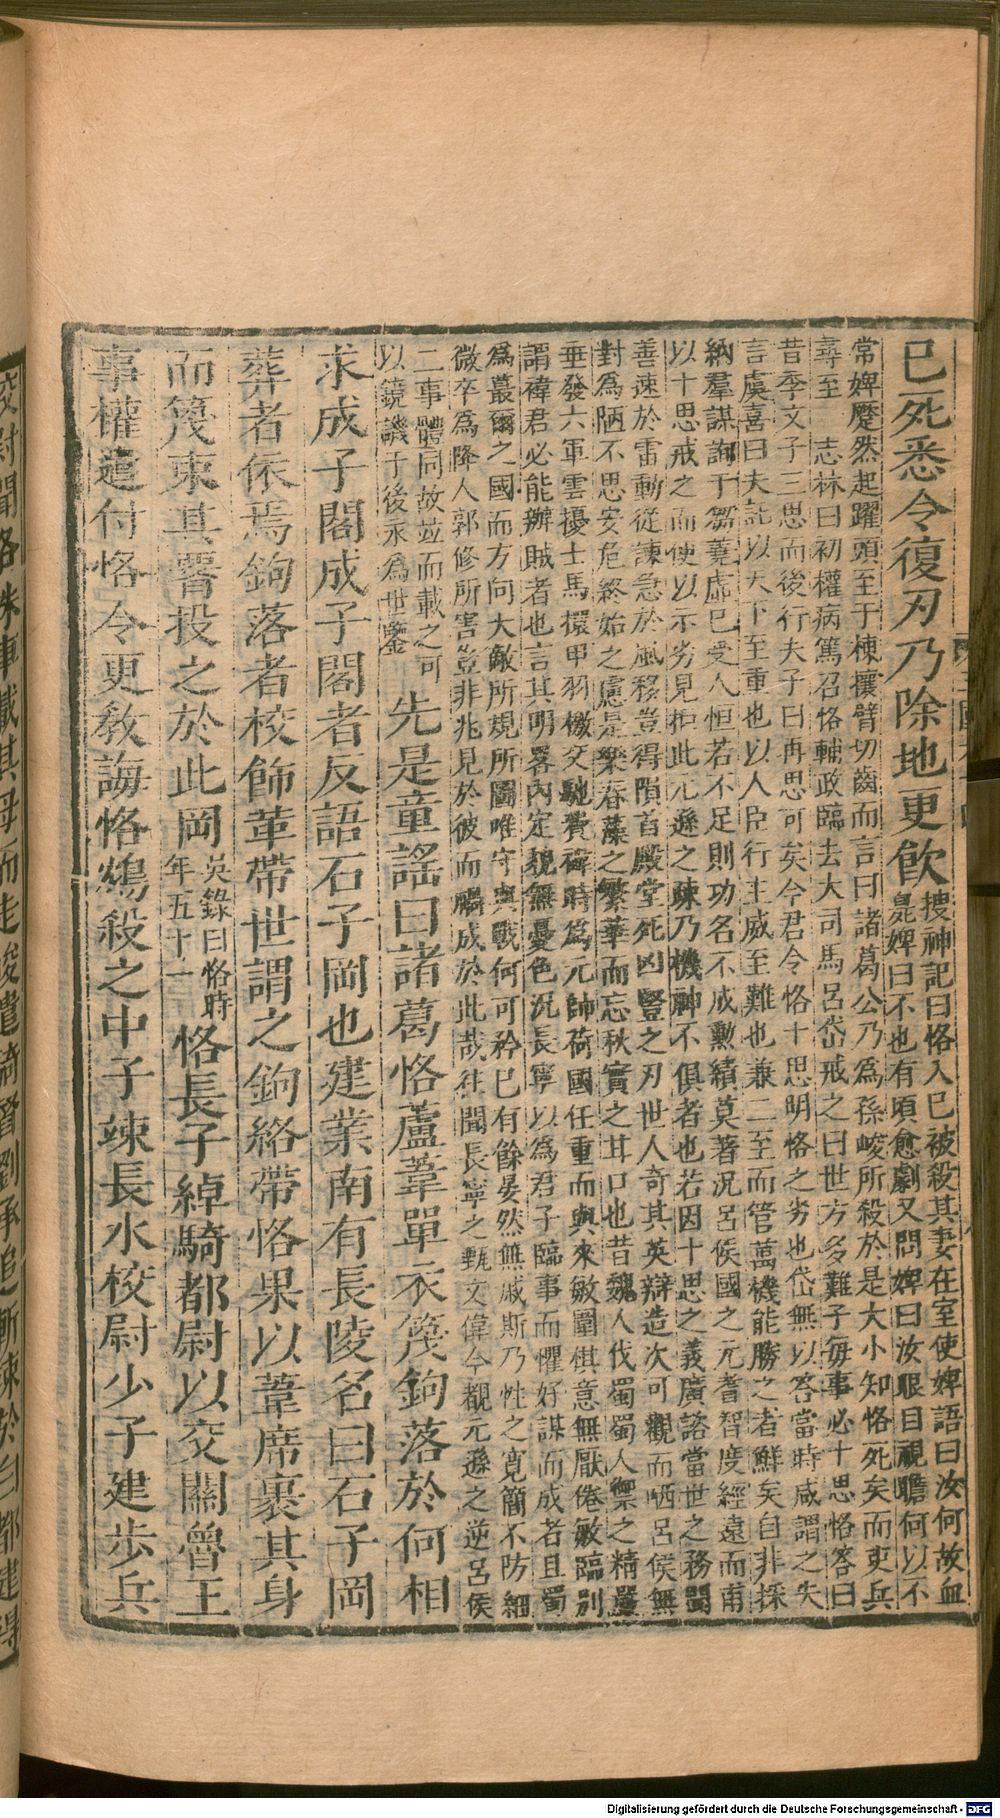 已死悉令復刃乃除地更飲
搜神記曰恪入已被殺其妻在室使婢語曰汝何故血
臰婢曰不也有頃愈劇又問婢曰汝眼目視瞻何以不
常婢蹷然起躍頭至于棟攘臂切齒而言曰諸葛公乃爲孫峻所殺於是大小知恪死矣而吏兵
尋至 志林曰初權病篤召恪輔政臨去大司馬呂岱戒之曰世方多難子毎事必十思恪答曰
昔季文子三思而後行夫子曰再思可矣今君令恪十思明恪之劣也岱無以答當時咸謂之失
言虞喜曰夫託以天下至重也以人臣行主威至難也兼二至而管萬機能勝之者鮮矣自非採
納羣謀詢于芻蕘虛已受人恒若不足則功名不成勳績莫著況呂侯國之元耆智度經遠而甫
以十思戒之而便以示劣見拒此元遜之疎乃機神不俱者也若因十思之義廣諮當世之務聞
善速於雷動從諫急於風移豈得隕首殿堂死凶豎之刃世人奇其英辯造次可觀而哂呂侯無
對爲陋不思安危終始之慮是樂春藻之繁華而忘秋實之甘口也昔魏人伐蜀蜀人禦之精嚴
垂發六軍雲擾士馬擐甲羽檄交馳費禕時爲元帥荷國任重而與來敏圍棋意無厭倦敏臨別
謂禕君必能辦賊者也言其明畧內定貌無憂色況長寧以爲君子臨事而懼好謀而成者且蜀
爲蕞爾之國而方向大敵所規所圖唯守與戰何可矜已有餘晏然無戚斯乃性之寛簡不防細
微卒爲降人郭修所害豈非兆見於彼而禍成於此哉往聞長寧之甄文偉今觀元遜之逆呂侯
二事體同故竝而載之可
以鏡譏于後永爲世鑒
先是童謠曰諸葛恪蘆葦單衣篾鉤落於何相
求成子閣成子閣者反語石子岡也建業南有長陵名曰石子岡
葬者依焉鉤落者校飾革帶世謂之鉤絡帶恪果以葦席裹其身
而篾束其署投之於此岡
吳錄曰恪時
年五十一
恪長子綽騎都尉以交關魯王
事權遣付恪令更敎誨恪鴆殺之中子竦長水校尉少子建步兵
校尉聞恪誅車載其母而走峻遣騎督劉承追斬竦於白都建得
Digitalisierung gefördert durch die Deutsche Forschungsgemeinschaft - DFG